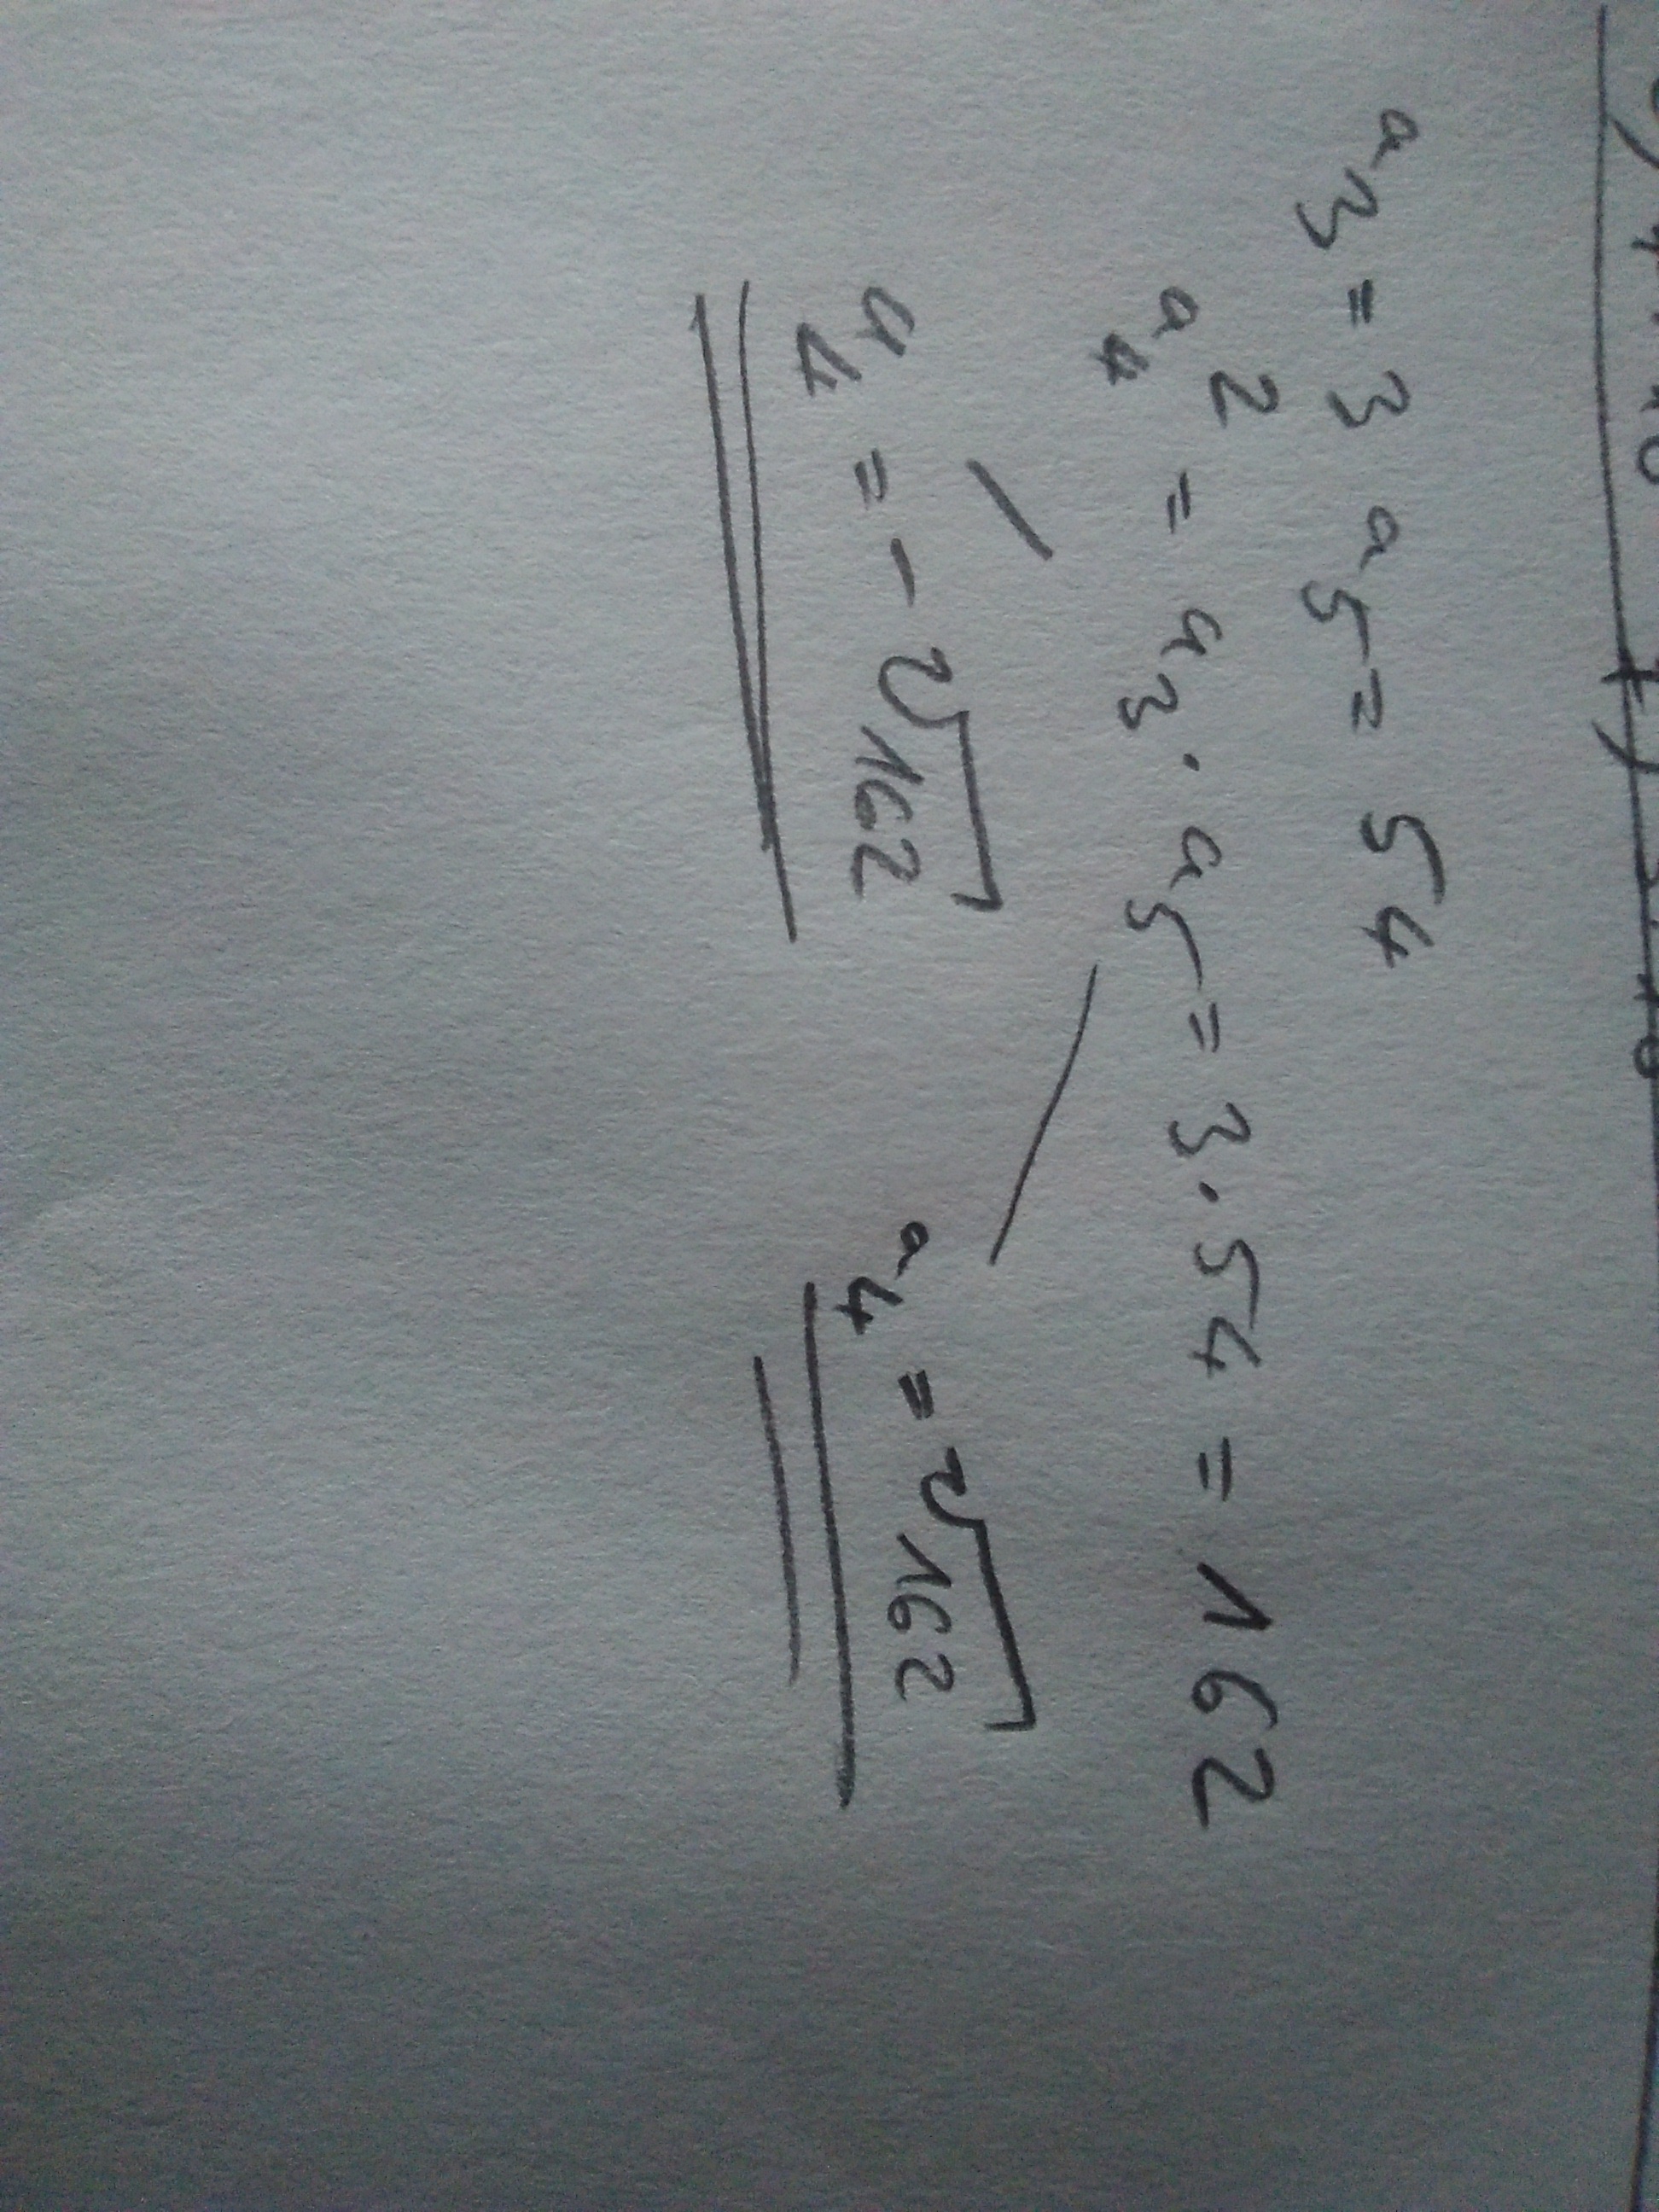 a₃ = 3 a₅ = 54
a₄² = a₃ · a₅ = 3 · 54 = 162
a₄ = -√162 a₄ = √162